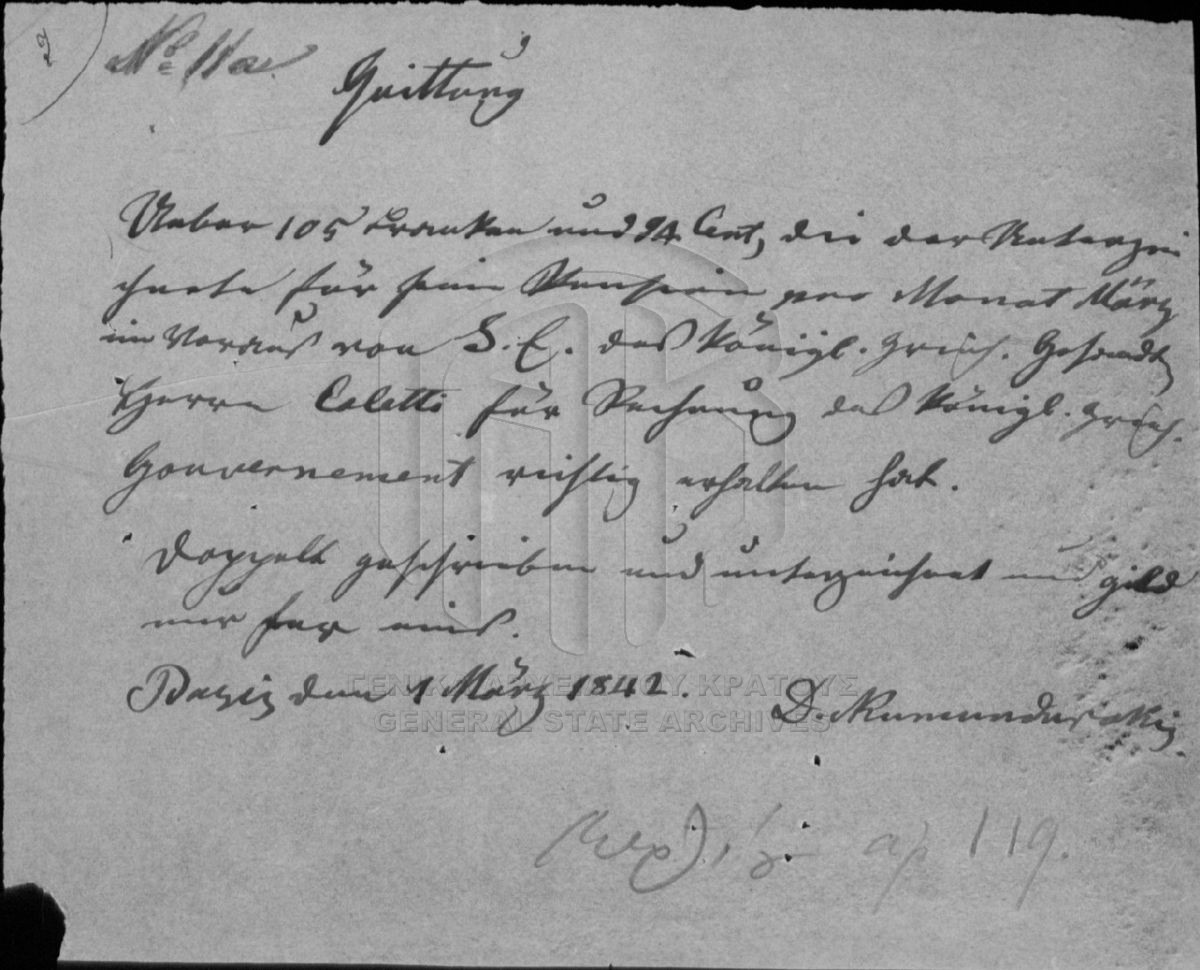 22
No 11a.
Quittung
Ueber 105 Franken und 94 Cent, die der Unterzei
chnete für seine Pension per Monat März
im Voraus von S. E. des königl. griech. Gesandt
Herrn Coletti für Rechnung des königl. griech.
Gouvernement richtig erhalten hat.
Doppelt geschrieben und unterzeichnet und gild
nur fer eins.
Pariz den 1 März 1842.
D.
ΓΕΝΙΚΑ ΑΡΧΕΙΑ ΤΟΥ ΚΡΑΤΟΥΣ
GENERAL STATE ARCHIVES
αρ 119.